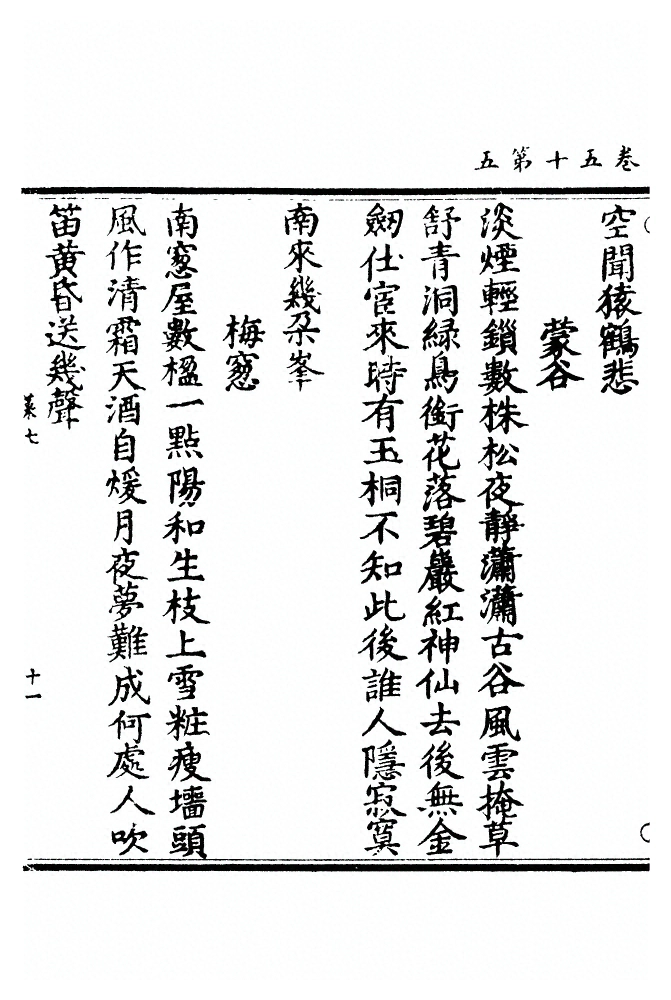 卷五十第五
空聞猿鶴悲
蒙谷
淡煙輕鎖數株松夜靜瀟瀟古谷風雲掩草
舒青洞綠鳥銜花落碧巖紅神仙去後無金
劒仕宦來時有玉桐不知此後誰人隱寂寞
南來幾朶峯
梅窓
南窓屋數楹一點陽和生枝上雪粧瘦墻頭
風作清霜天酒自煖月夜夢難成何處人吹
笛黃昏送幾聲
菉七
十一